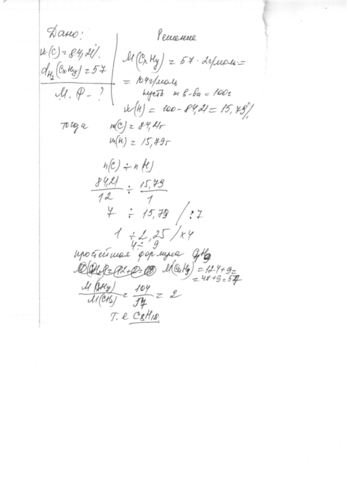 Дано:
Решение
w(C) = 84,21%
dH2(CxHy) = 57
М.Ф. - ?
M(CxHy) = 57 · 2г/моль =
= 104г/моль
пусть m в-ва = 100г
w(H) = 100 - 84,21 = 15,79%
тогда m(C) = 84,21г
m(H) = 15,79г
n(C) ÷ n(H)
84,21/12 ÷ 15,79/1
7 ÷ 15,79 /:7
1 ÷ 2,25 /x4
4 ÷ 9
простейшая формула C4H9
M(C4H9) = 12·4+9 =
= 48+9 = 57
= 104/57 = 2
т.е C8H18